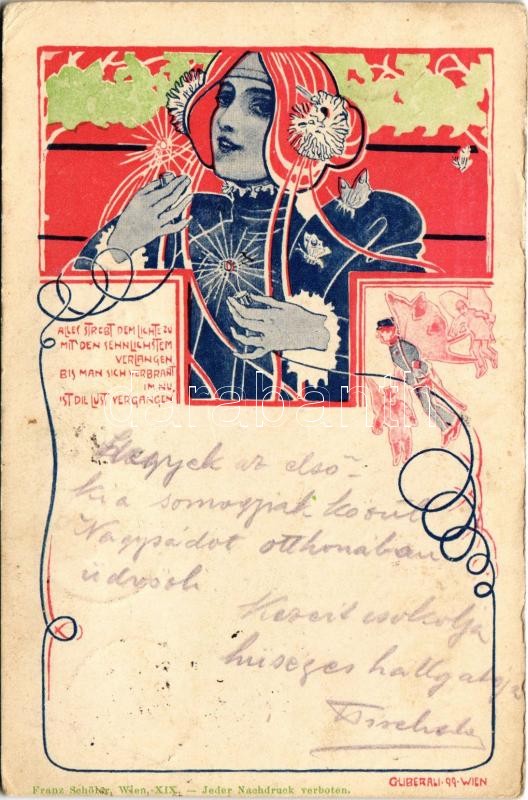 ALLES STREBT DEM LICHTE ZU
MIT DEN SEHNLICHSTEM
VERLANGEN
BIS MAN SICH VERBRANT
IM NU,
IST DIE LUST VERGANGEN
darabanth
Legyek az első
ki a somogyiak közül
otthonában
üdvözli
Kezeit csókolja
hűséges hallgatója
G. LIBERALI · 99 · WIEN
Franz Schöler, Wien, XIX. — Jeder Nachdruck verboten.